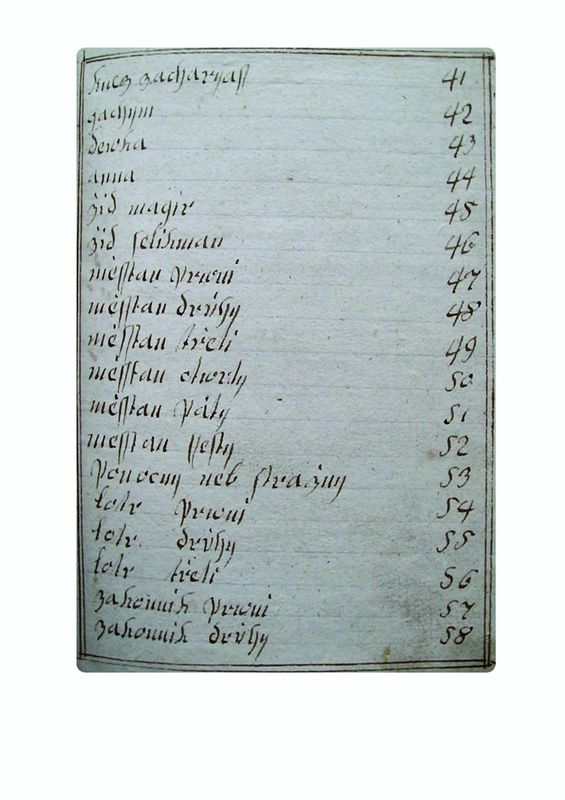 knez zacharyaſs 41
gachym 42
dewka 43
anna 44
žid magir 45
žid ſelikman 46
mèſſtan prwni 47
mèſſtan drúhy 48
mèſſtan třeti 49
mèſſtan cžwrty 50
mèſſtan páty 51
mèſſtan ſſeſty 52
ponocny neb ſtražny 53
lotr prwni 54
lotr drúhy 55
lotr třeti 56
zakonnik prwni 57
zakonnik drúhy 58